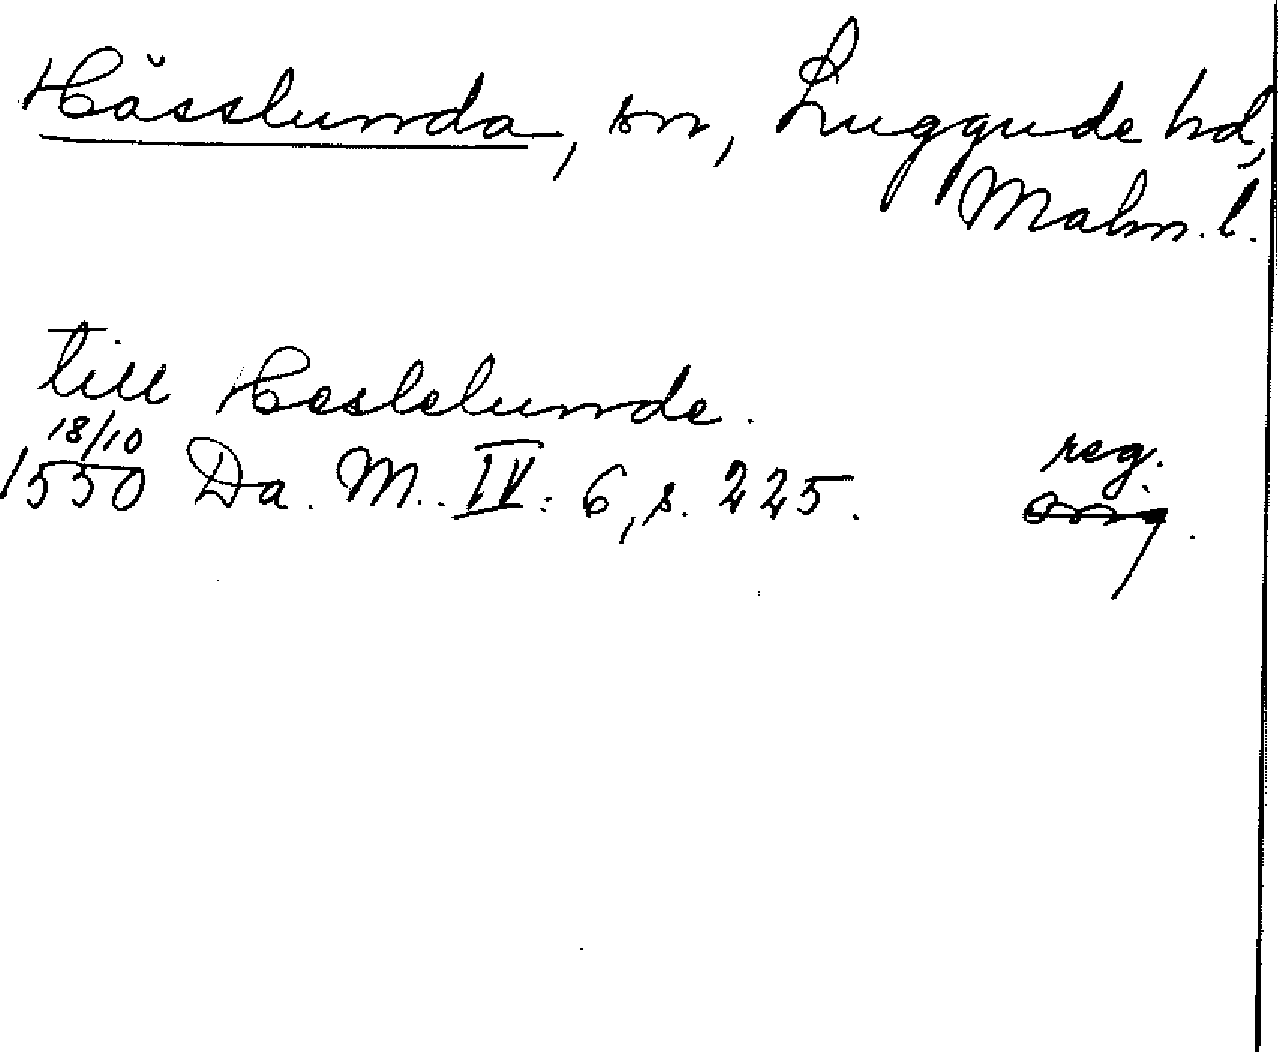 Hässlunda, sn, Luggude hd,
Malm. l.
till Heslelunde.
18/10
1550 Da. M. IV: 6, s. 225.
reg.
orig.